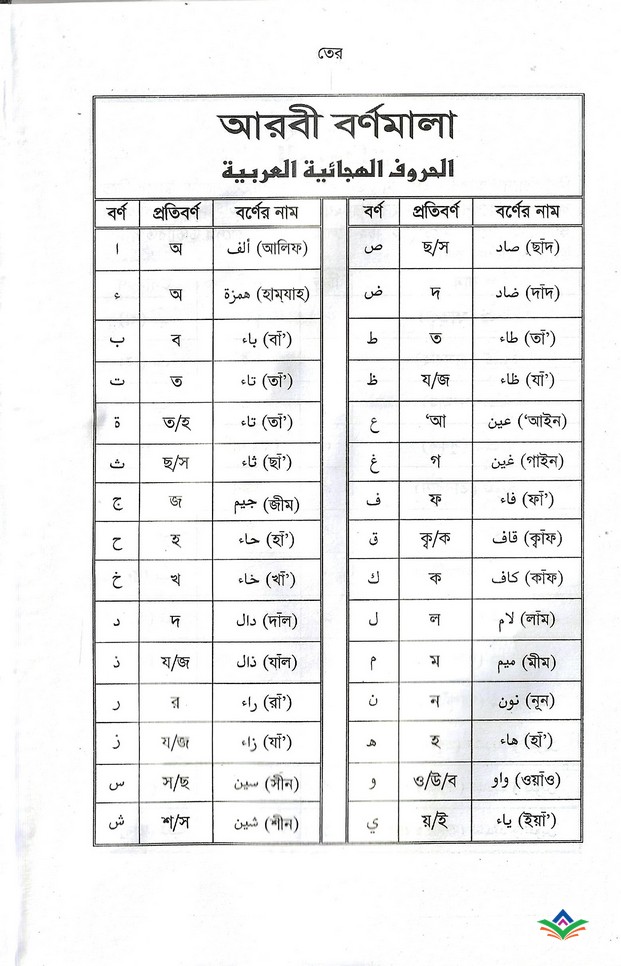 তের
আরবী বর্ণমালা
الحروف الهجائية العربية
বর্ণ প্রতিবর্ণ বর্ণের নাম বর্ণ প্রতিবর্ণ বর্ণের নাম
ا অ ألف (আলিফ) ص ছ/স صاد (ছাঁদ)
ء অ همزة (হাম্‌যাহ) ض দ ضاد (দাঁদ)
ب ব باء (বাঁ’) ط ত طاء (তাঁ’)
ت ত تاء (তাঁ’) ظ য/জ ظاء (যাঁ’)
ة ত/হ تاء (তাঁ’) ع ‘আ عين (‘আইন)
ث ছ/স ثاء (ছাঁ’) غ গ غين (গাইন)
ج জ جيم (জীম) ف ফ فاء (ফাঁ’)
ح হ حاء (হাঁ’) ق ক্ব/ক قاف (ক্বাঁফ)
خ খ خاء (খাঁ’) ك ক كاف (কাঁফ)
د দ دال (দাঁল) ل ল لام (লাঁম)
ذ য/জ ذال (যাঁল) م ম ميم (মীম)
ر র راء (রাঁ’) ن ন نون (নূন)
ز য/জ زاء (যাঁ’) ه হ هاء (হাঁ’)
س স/ছ سين (সীন) و ও/উ/ব واو (ওয়াঁও)
ش শ/স شين (শীন) ي য়/ই ياء (ইয়াঁ’)